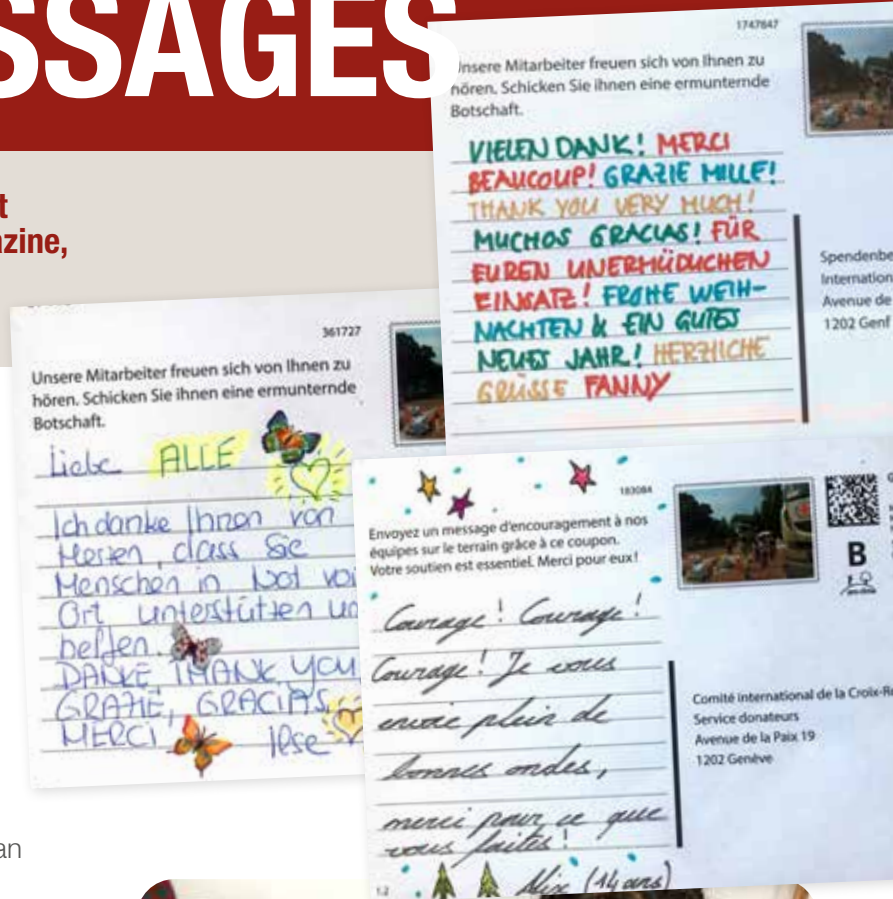 SSAGES
t
azine,
1747847
Unsere Mitarbeiter freuen sich von Ihnen zu
hören. Schicken Sie ihnen eine ermunternde
Botschaft.
VIELEN DANK! MERCI
BEAUCOUP! GRAZIE MILLE!
THANK YOU VERY MUCH!
MUCHOS GRACIAS! FÜR
EUREN UNERMÜDLICHEN
EINSATZ! FROHE WEIH-
NACHTEN & EIN GUTES
NEUES JAHR! HERZLICHE
GRÜSSE FANNY
Spendenbe
Internation
Avenue de
1202 Genf
361727
Unsere Mitarbeiter freuen sich von Ihnen zu
hören. Schicken Sie ihnen eine ermunternde
Botschaft.
Liebe ALLE
Ich danke Ihnen von
Herzen, dass Sie
Menschen in Not vo
Ort unterstützen un
helfen.
DANKE THANK YOU
GRAZIE, GRACIAS,
MERCI Ilse
183084
Envoyez un message d'encouragement à nos
équipes sur le terrain grâce à ce coupon.
Votre soutien est essentiel. Merci pour eux!
Courage! Courage!
Courage! Je vous
envoie plein de
bonnes ondes,
merci pour ce que
vous faites!
Alix (14 ans)
B
Comité international de la Croix-Ro
Service donateurs
Avenue de la Paix 19
1202 Genève
12
an